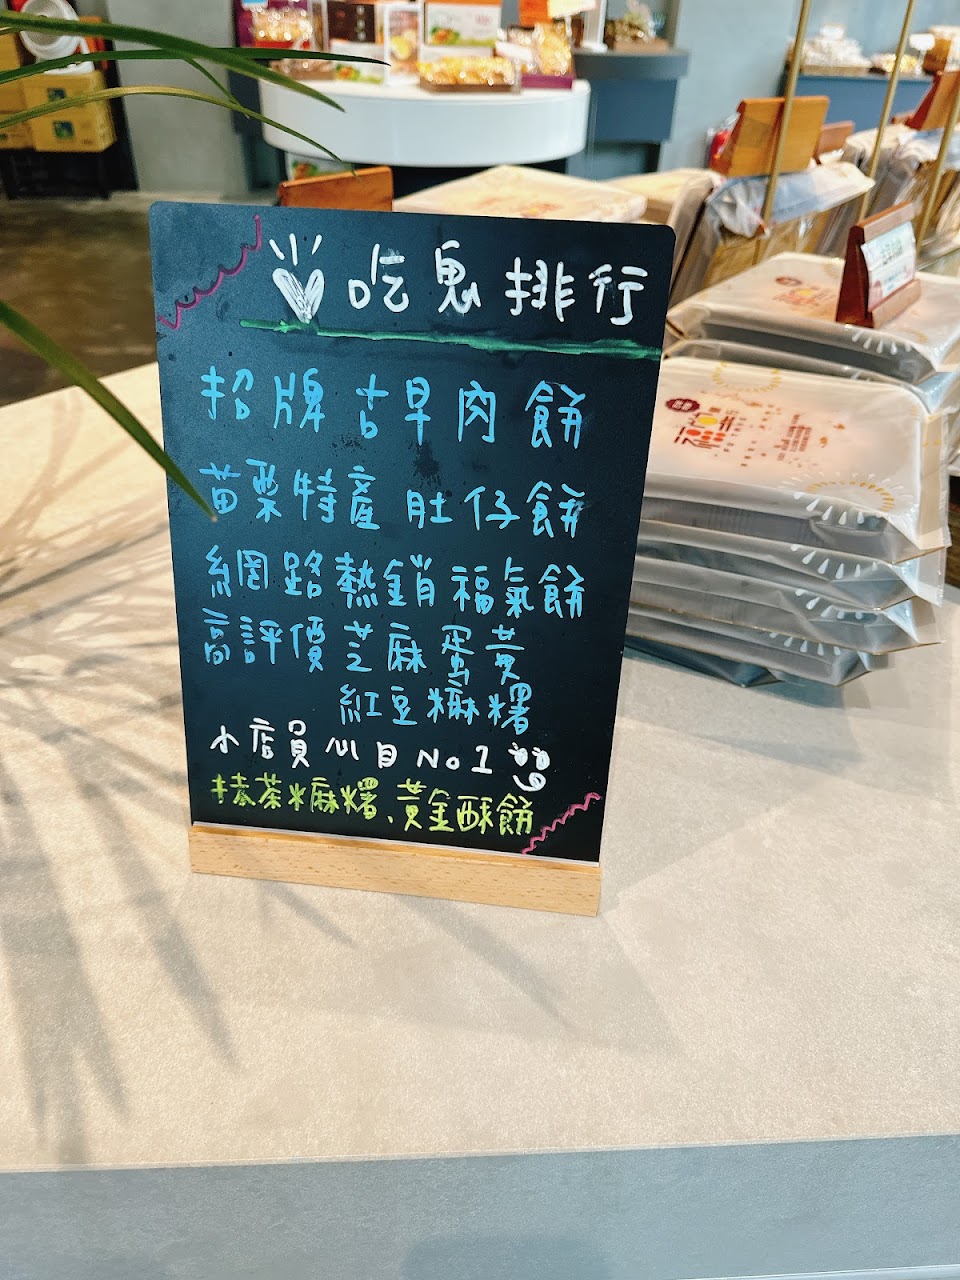 吃鬼排行
招牌古早肉餅
苗栗特產肚仔餅
網路熱銷福氣餅
高評價芝麻蛋黃
紅豆糍糬
小店員心目No1
擂茶麻糬、黃金酥餅